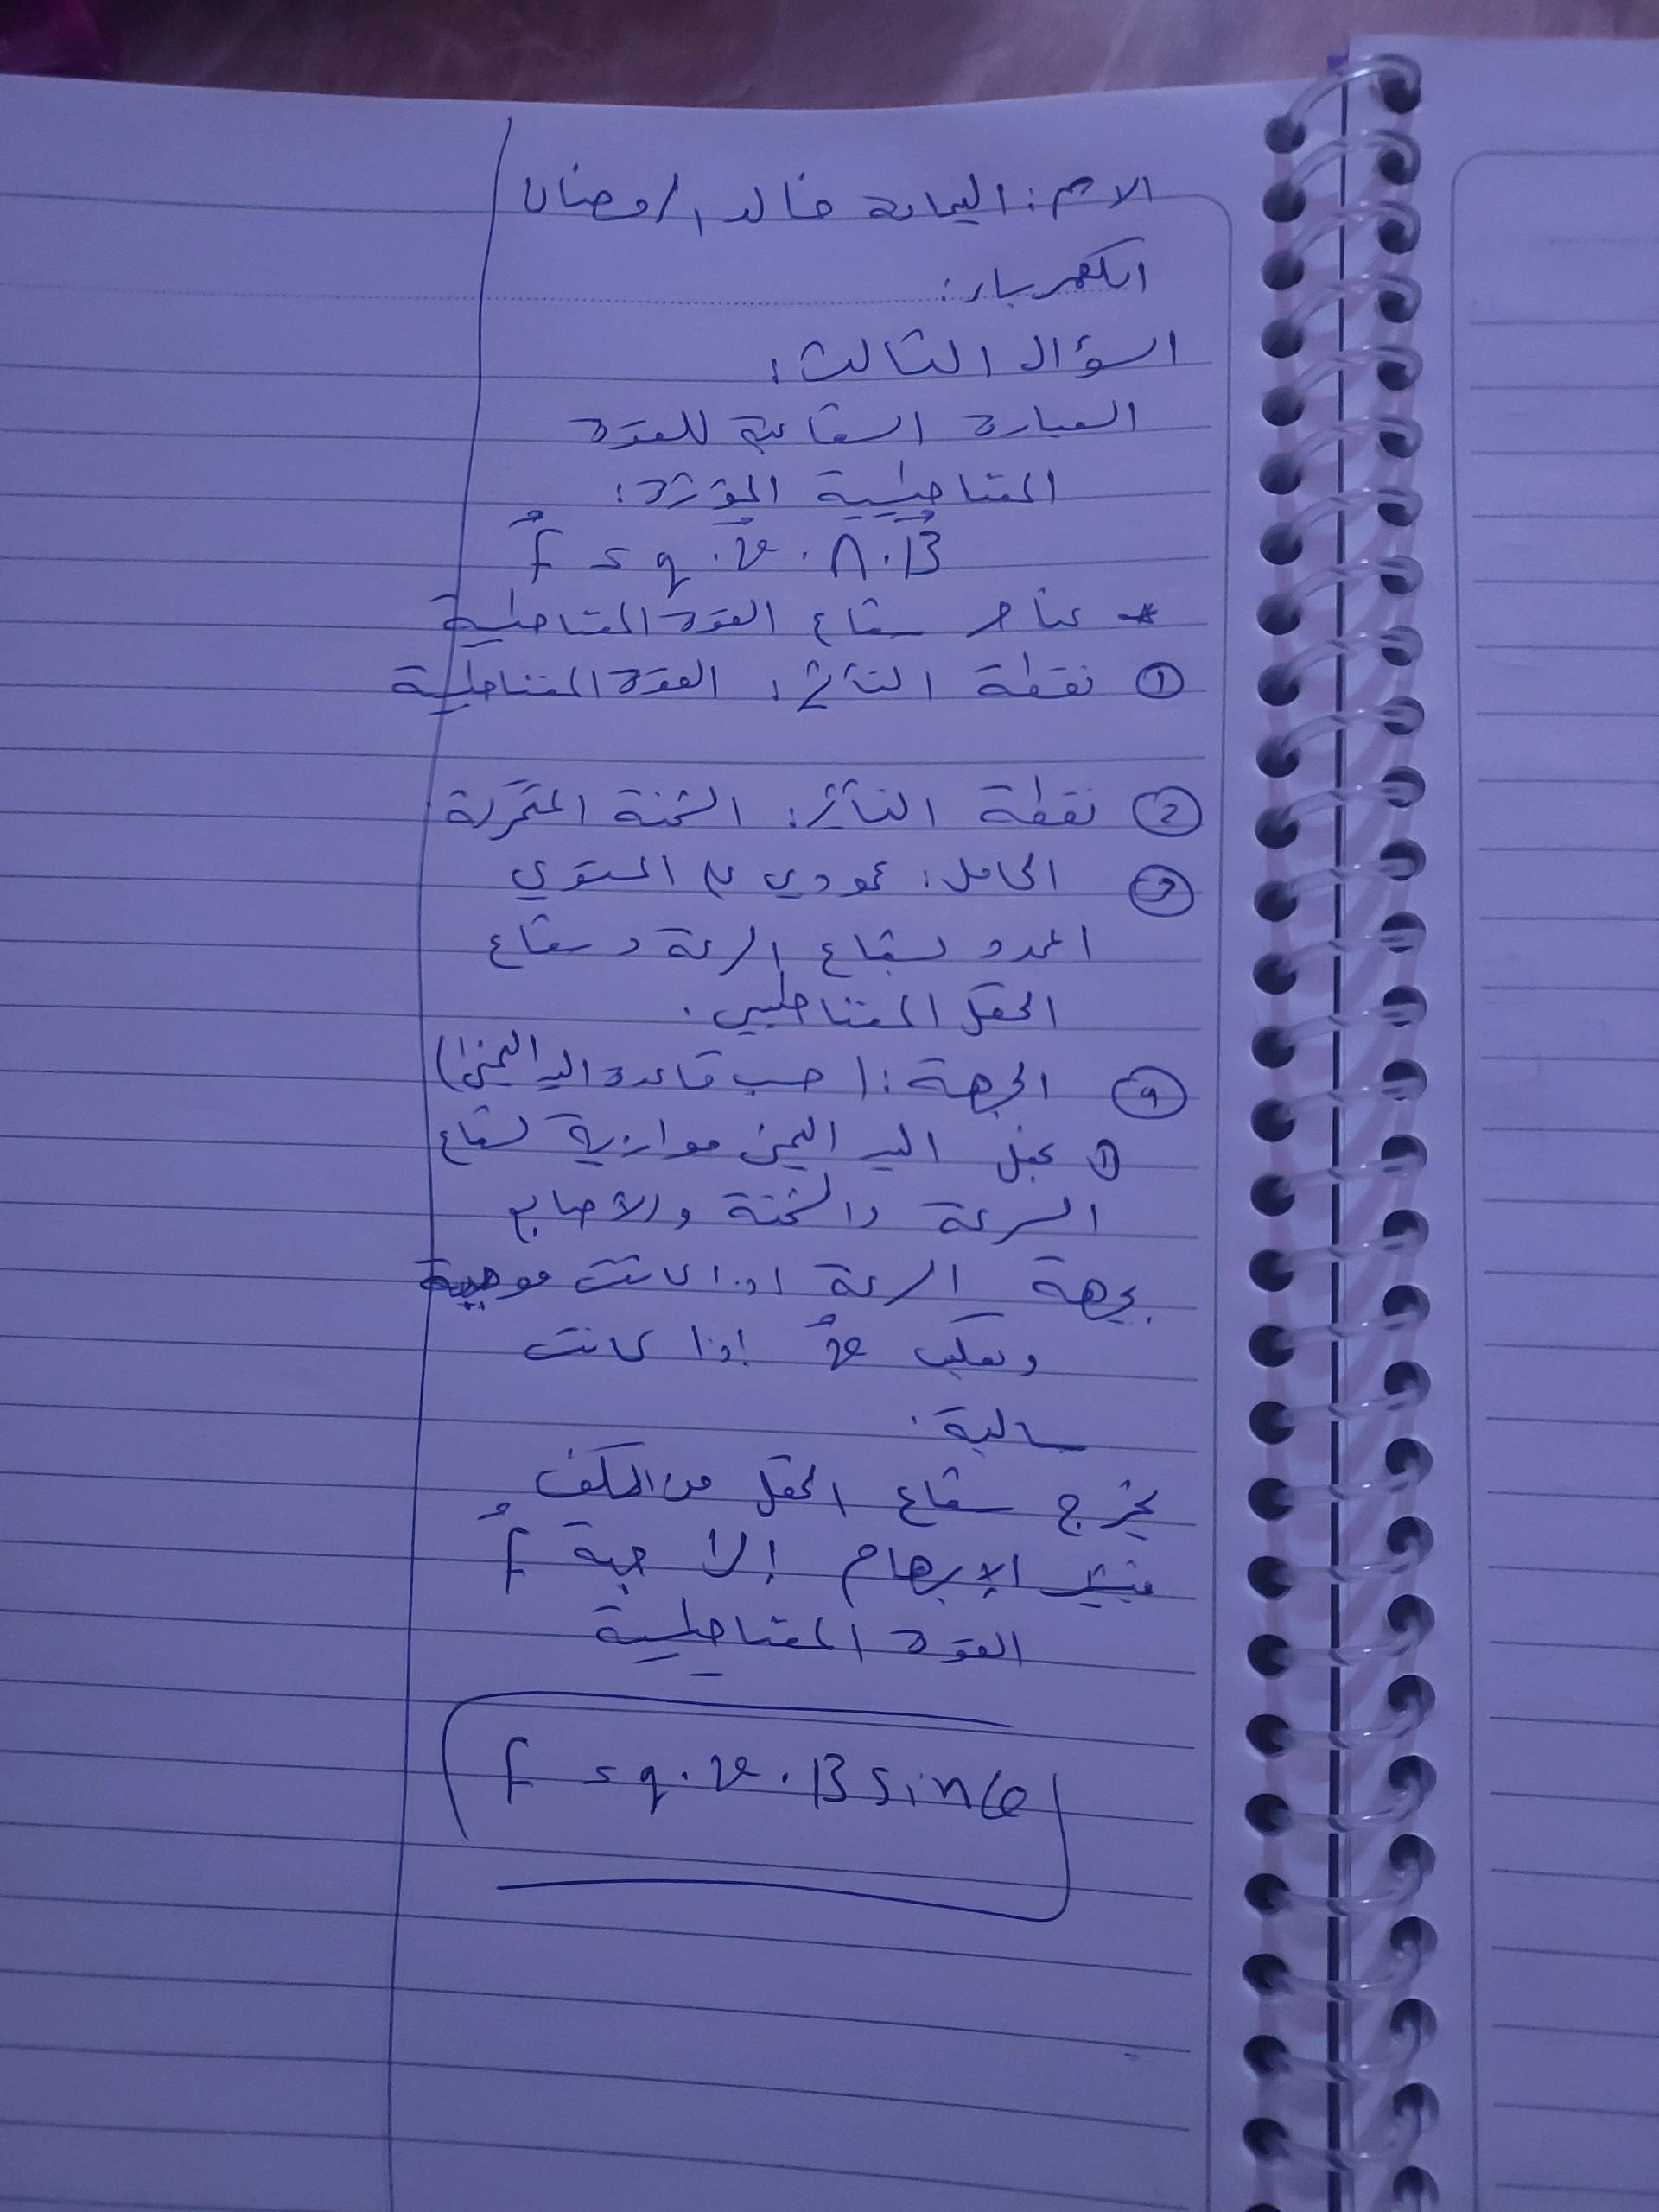 الاسم: اليمامة خالد رمضان
الكهرباء:
السؤال الثالث:
العبارة الشعاعية للقوة
المغناطيسية المؤثرة:
f = q . v . ∧ . B
* عناصر شعاع القوة المغناطيسية
① نقطة التأثير: القوة المغناطيسية
② نقطة التأثير: الشحنة المتحركة
③ الحامل: عمودي على المستوي
المحدد بشعاع السرعة وشعاع
الحقل المغناطيسي.
④ الجهة: (حسب قاعدة اليد اليمنى)
① نجعل اليد اليمنى موازية لشعاع
السرعة والشحنة والأصابع
بجهة السرعة اذا كانت موجبة
وبعكس v إذا كانت
سالبة.
يخرج شعاع الحقل من الكف
يشير الإبهام إلا جهة f
القوة المغناطيسية
f = q . v . B sin θ